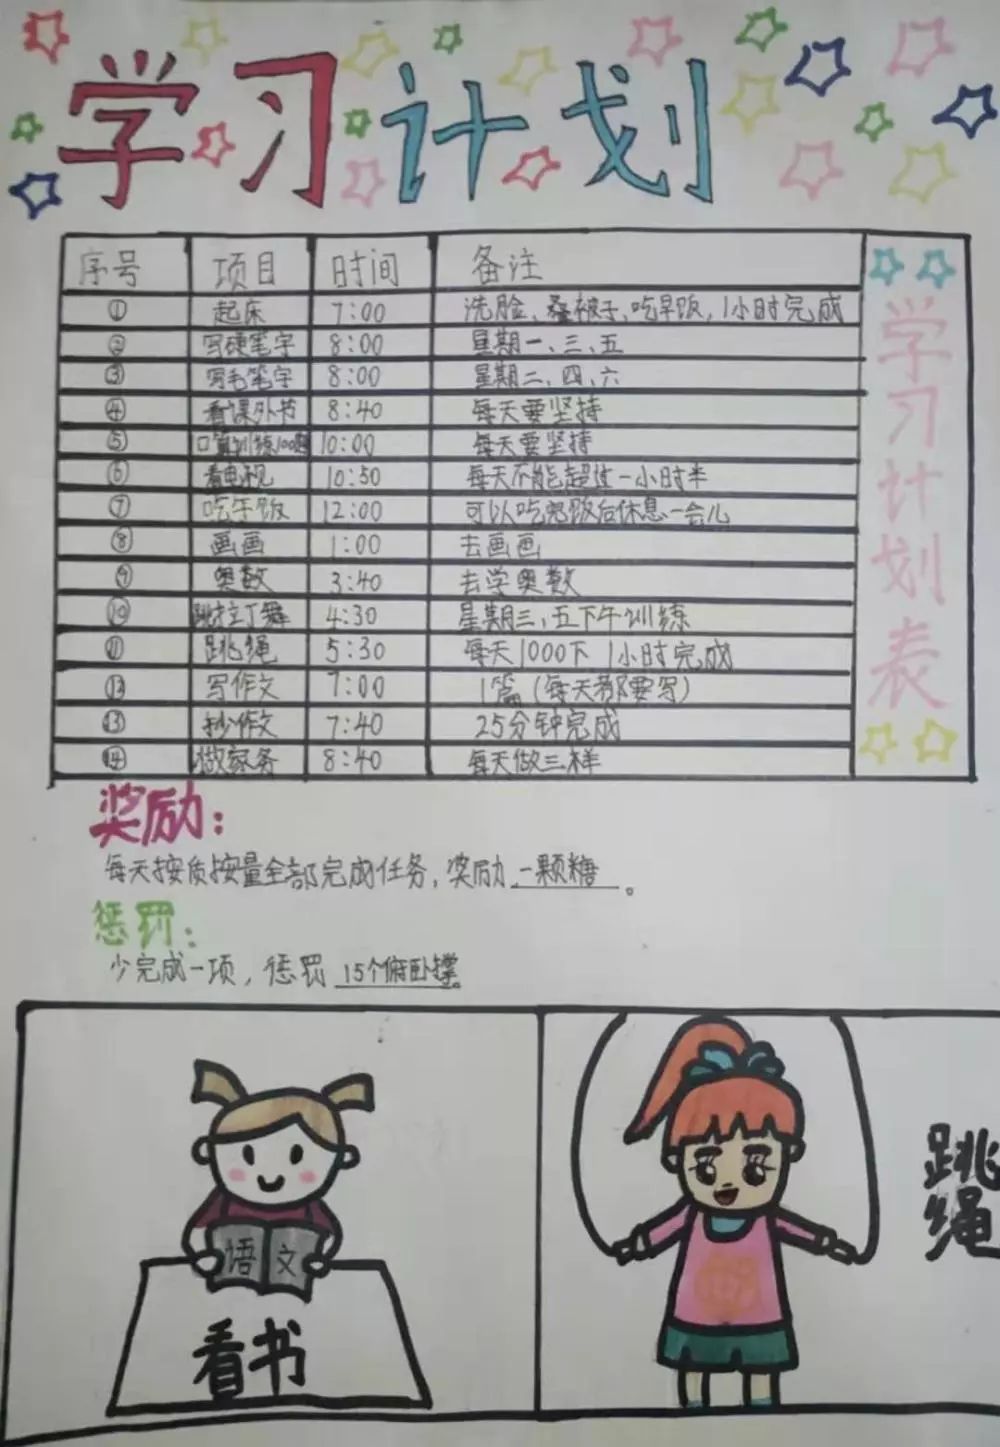 学习计划
序号 项目 时间 备注
① 起床 7:00 洗脸、叠被子、吃早饭,1小时完成
② 写硬笔字 8:00 星期一、三、五
③ 写毛笔字 8:00 星期二、四、六
④ 看课外书 8:40 每天要坚持
⑤ 口算训练100题 10:00 每天要坚持
⑥ 看电视 10:50 每天不能超过一小时半
⑦ 吃午饭 12:00 可以吃完饭后休息一会儿
⑧ 画画 1:00 去画画
⑨ 奥数 3:40 去学奥数
⑩ 跳拉丁舞 4:30 星期三、五下午训练
⑪ 跳绳 5:30 每天1000下 1小时完成
⑫ 写作文 7:00 1篇(每天都要写)
⑬ 抄作文 7:40 25分钟完成
⑭ 做家务 8:40 每天做三样
学习计划表
奖励:
每天按质按量全部完成任务,奖励一颗糖。
惩罚:
少完成一项,惩罚15个俯卧撑。
语文
看书
跳绳